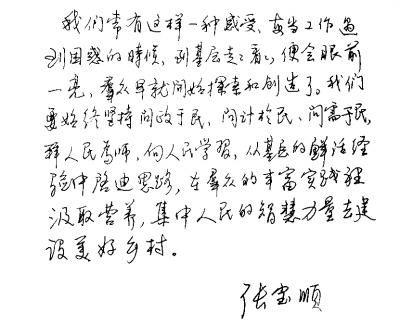 我们常有这样一种感受，每当工作遇
到困惑的时候，到基层走走看看，便会眼前
一亮，群众早就开始探索和创造了。我们
要始终坚持问政于民、问计于民、问需于民，
拜人民为师，向人民学习，从基层的鲜活经
验中启迪思路，在群众的丰富实践里
汲取营养，集中人民的智慧力量去建
设美好乡村。
张宝顺